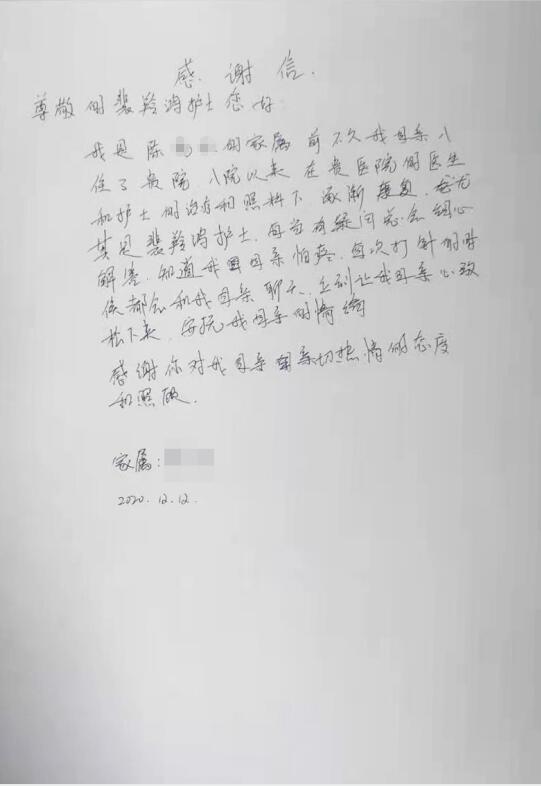 感谢信.
尊敬的裴羚鸿护士您好:
我是陈 的家属 前不久我母亲入
住了贵院,入院以来 在贵医院的医生
和护士的治疗和照料下,逐渐康复,尤
其是裴羚鸿护士,每当有疑问总会细心
解答,知道我母亲怕疼,每次打针的时
候都会和我母亲聊天,让我母亲心放
松下来,安抚我母亲的情绪
感谢你对我母亲亲切热情的态度
和照顾.
家属:
2020.12.12.